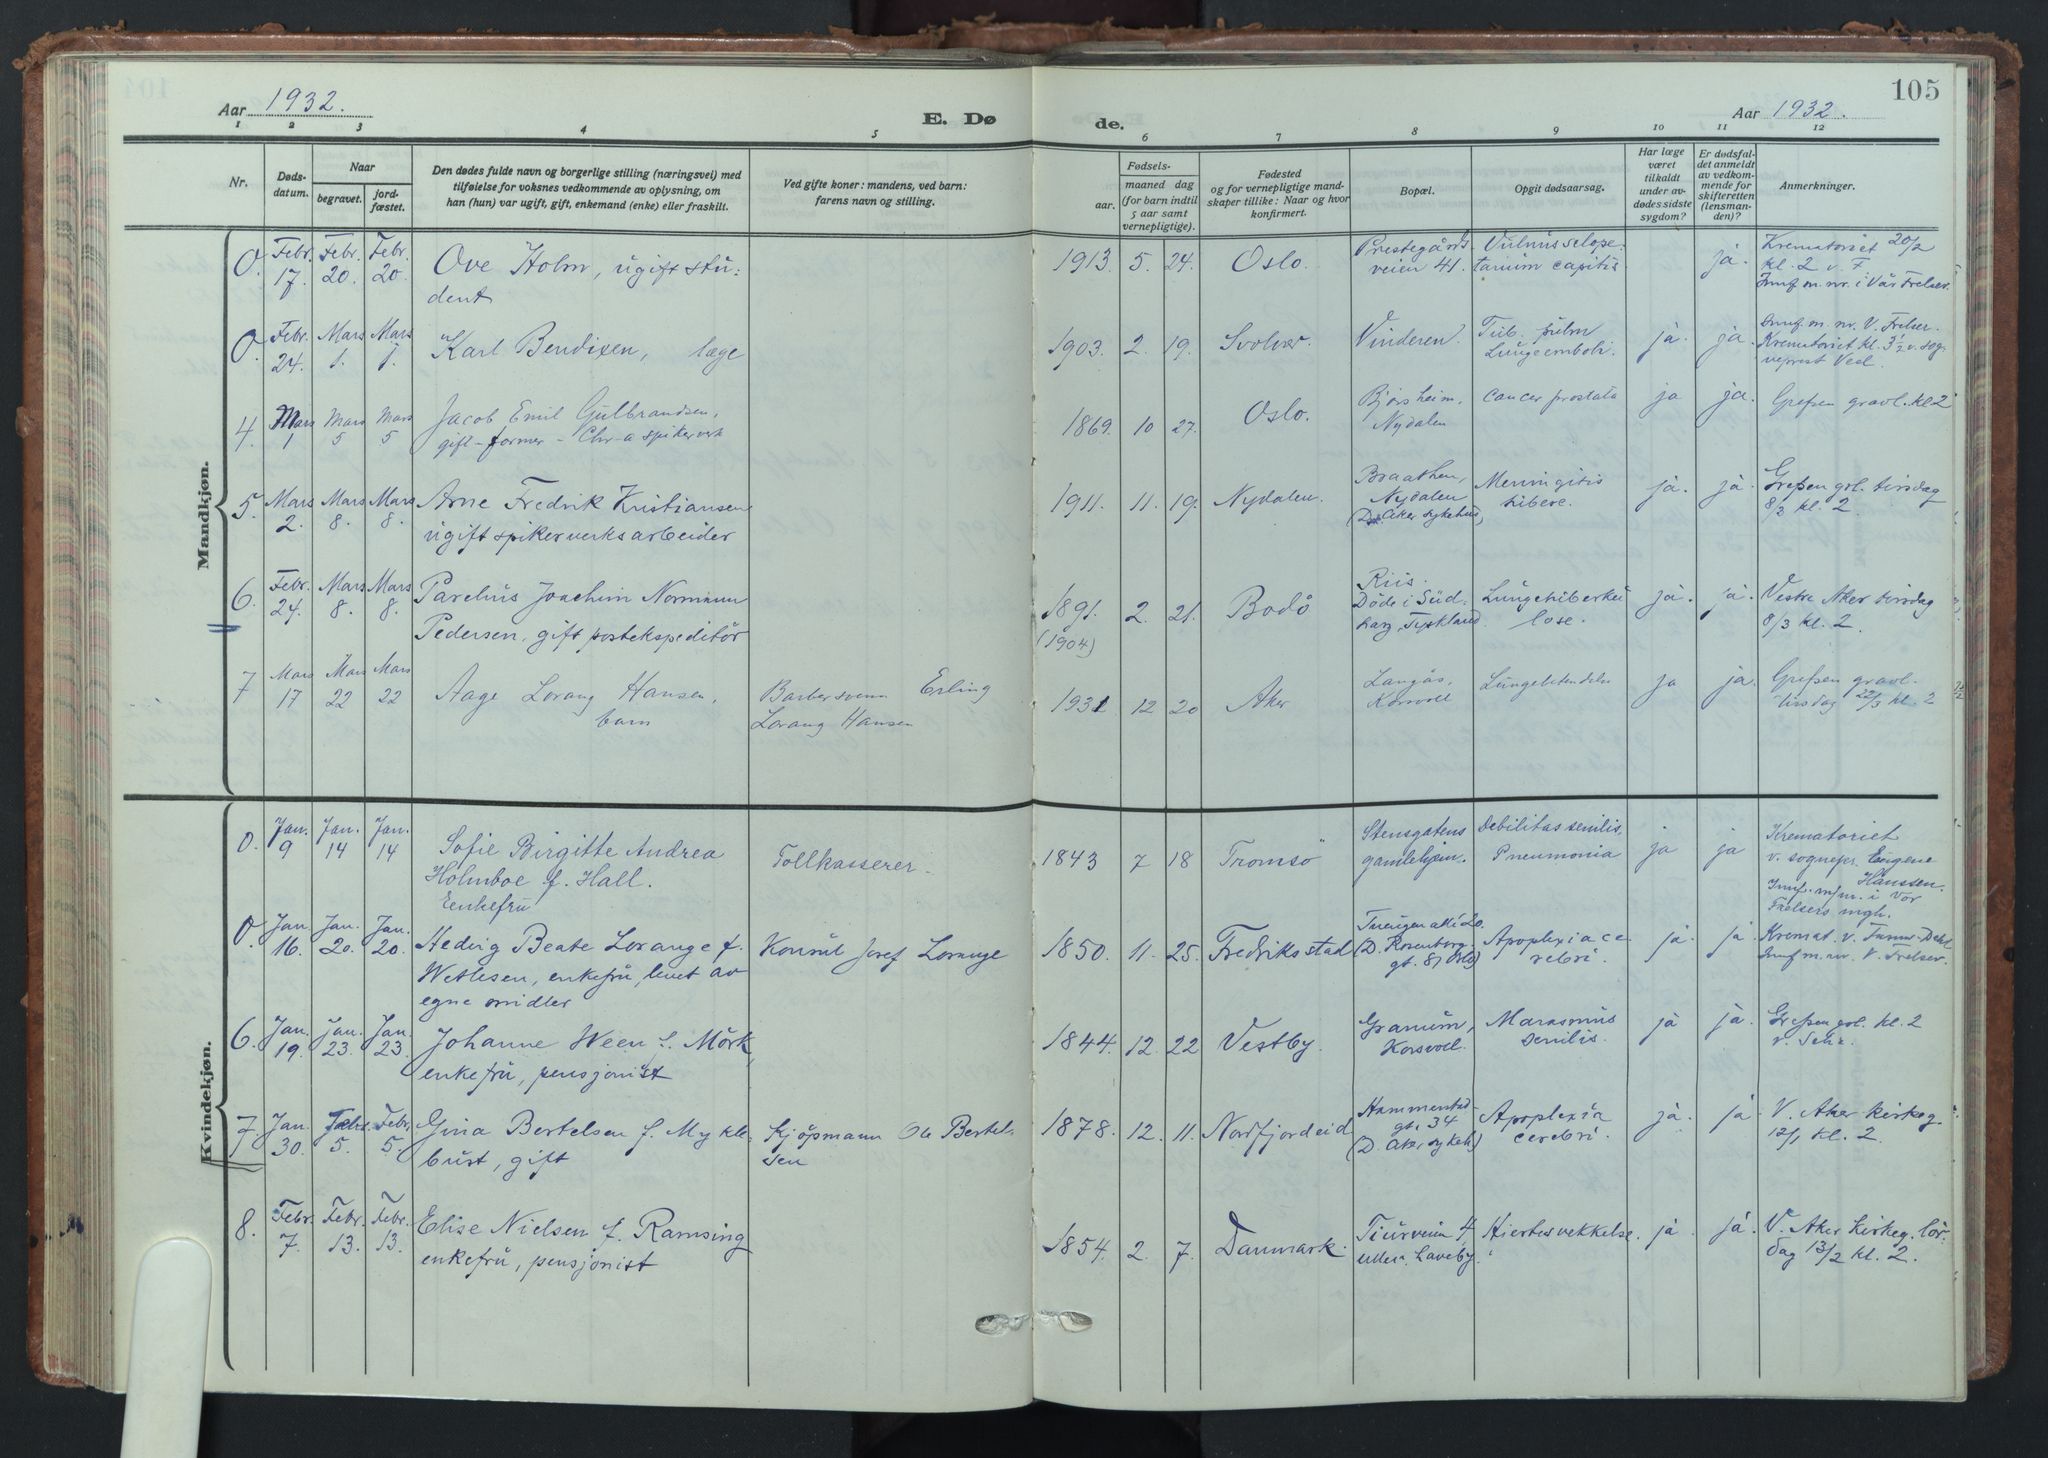 Aar 1932.
E. Dø
de.
Aar 1932.
105
1 2 3 4 5 6 7 8 9 10 11 12
Nr.
Døds-
datum.
Naar
begravet.
jord-
fæstet.
Den dødes fulde navn og borgerlige stilling (næringsvei) med
tilføielse for voksnes vedkommende av oplysning, om
han (hun) var ugift, gift, enkemand (enke) eller fraskilt.
Ved gifte koner: mandens, ved barn:
farens navn og stilling.
Fødsels-
aar.
maaned dag
(for barn indtil
5 aar samt
vernepligtige).
Fødested
og for vernepligtige mand-
skaper tillike: Naar og hvor
konfirmert.
Bopæl.
Opgit dødsaarsag.
Har læge
været
tilkaldt
under av-
dødes sidste
sygdom?
Er dødsfal-
det anmeldt
av vedkom-
mende for
skifteretten
(lensman-
den)?
Anmerkninger.
Mandkjøn.
0. Febr. 17. Febr. 20. Febr. 20.
Ove Holm, ugift stu-
dent
1913. 5. 24. Oslo.
Prestegårds-
veien 41.
Vulnus selope-
tarium capitis.
ja.
Krematoriet 20/2
kl. 2 v. F
Innf. m. nr. i Vår Frelser.
0. Febr. 24. Mars 1. Mars 1.
Karl Bendixen, læge
1903. 2. 19. Svolvær. Vinderen.
Tub. pulm
Lungeemboli.
ja. ja.
Innf. m. nr. V. Frelser.
Krematoriet kl. 3 1/2 v. sog-
neprest Ved.
4. Mars 1 Mars 5 Mars 5
Jacob Emil Gulbrandsen,
gift - former - Chr-a spikerverk
1869. 10 27. Oslo.
Bjørsheim,
Nydalen
Cancer prostata ja ja.
Grefsen gravl. kl 2
5. Mars 2. Mars 8. Mars 8.
Arne Fredrik Kristiansen
ugift spikerverksarbeider
1911. 11. 19. Nydalen.
Braathen,
Nydalen
(D. Aker sykehus)
Meningitis
tuberc.
ja. ja.
Grefsen grl. tirsdag
8/3 kl. 2.
6. Febr. 24. Mars 8. Mars 8.
Parelius Joachim Normann
Pedersen, gift postekspeditør
1891. 2. 21. Bodø
(1904)
Riis.
Døde i Süd-
harz, Tyskland.
Lungetuberku-
lose.
ja. ja.
Vestre Aker tirsdag
8/3 kl. 2.
7 Mars 17 Mars 22 Mars 22
Aage Lorang Hansen,
barn
Barbersvenn Erling
Lorang Hansen
1931 12 20 Aker
Langås,
Korsvoll
Lungebetendelse ja ja.
Grefsen gravl.
tirsdag 22/3 kl. 2
Kvindekjøn.
0. Jan. 9 Jan. 14 Jan. 14
Sofie Birgitte Andrea
Holmboe f. Hall.
Eenkefru
Tollkasserer.
1843 7 18 Tromsø
Stensgatens
gamlehjem.
Debilitas senilis.
Pneumonia
ja ja
Krematoriet
v. sognepr. Eugene
Hanssen.
Innf. m/nr. i Vor
Frelsers mgh.
0. Jan 16. Jan. 20. Jan. 20.
Hedvig Beate Lorange f.
Wetlesen, enkefru, levet av
egne midler
Konsul Josef Lorange
1850. 11. 25. Fredrikstad
Tuengen alle 20
(D. Rosenborg-
gt. 8, Oslo)
Apoplexia ce-
rebri.
ja. ja.
Kremat. v.
Innf. m. nr. V. Frelser.
6. Jan. 19. Jan. 23. Jan. 23.
Johanne Ween f. Mørk,
enkefru, pensjonist
1844. 12. 22 Vestby.
Granum,
Korsvoll.
Marasmus
senilis.
ja ja.
Grefsen grl. kl. 2
v. Schr.
7 Jan. 30. Febr. 5. Febr. 5.
Gina Bertelsen f. Mykle-
bust, gift
Kjøpmann Ole Bertel-
sen
1878. 12. 11. Nordfjordeid
Hammerstad-
gt. 34
(D. Aker sykeh.)
Apoplexia
cerebri.
ja. ja.
V. Aker kirkeg.
12/1 kl. 2.
8. Febr. 7. Febr. 13. Febr. 13.
Elise Nielsen f. Ramsing
enkefru, pensjonist
1854. 2. 7. Danmark.
Tiurveien 4,
Hjertesvekkelse. ja. ja.
V. Aker kirkeg. lør-
dag 13/2 kl. 2.